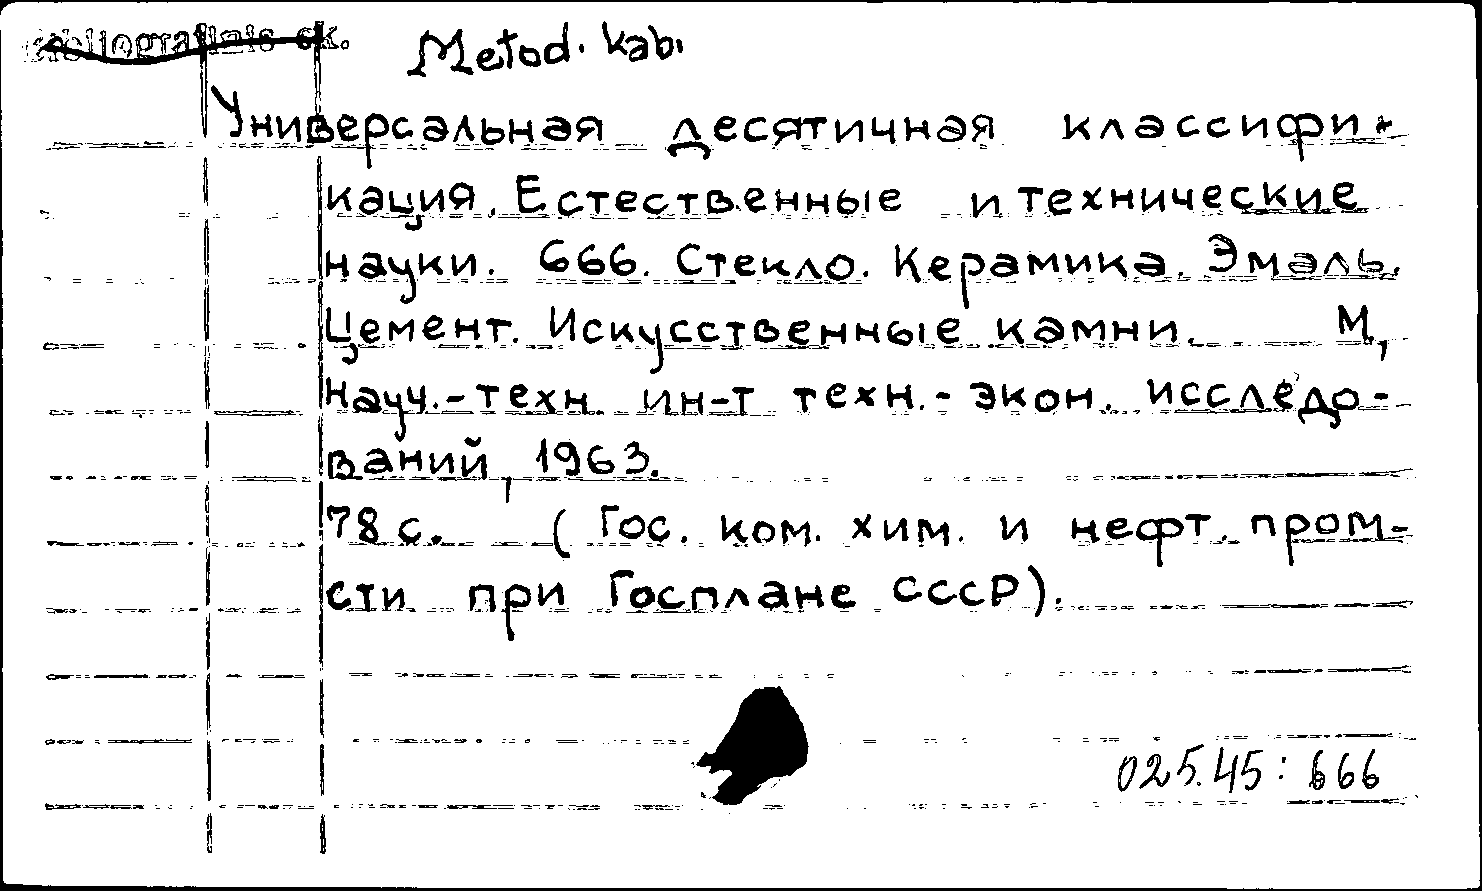 Bibliografinis sk. Metod. kab.
Универсальная десятичная классифи-
кация. Естественные и технические
науки. 666. Стекло. Керамика. Эмаль.
Цемент. Искусственные камни. М.,
Науч.-техн. ин-т техн.-экон. исследо-
ваний, 1963.
78 с. (Гос. ком. хим. и нефт. пром-
сти при Госплане СССР).
025.45:666